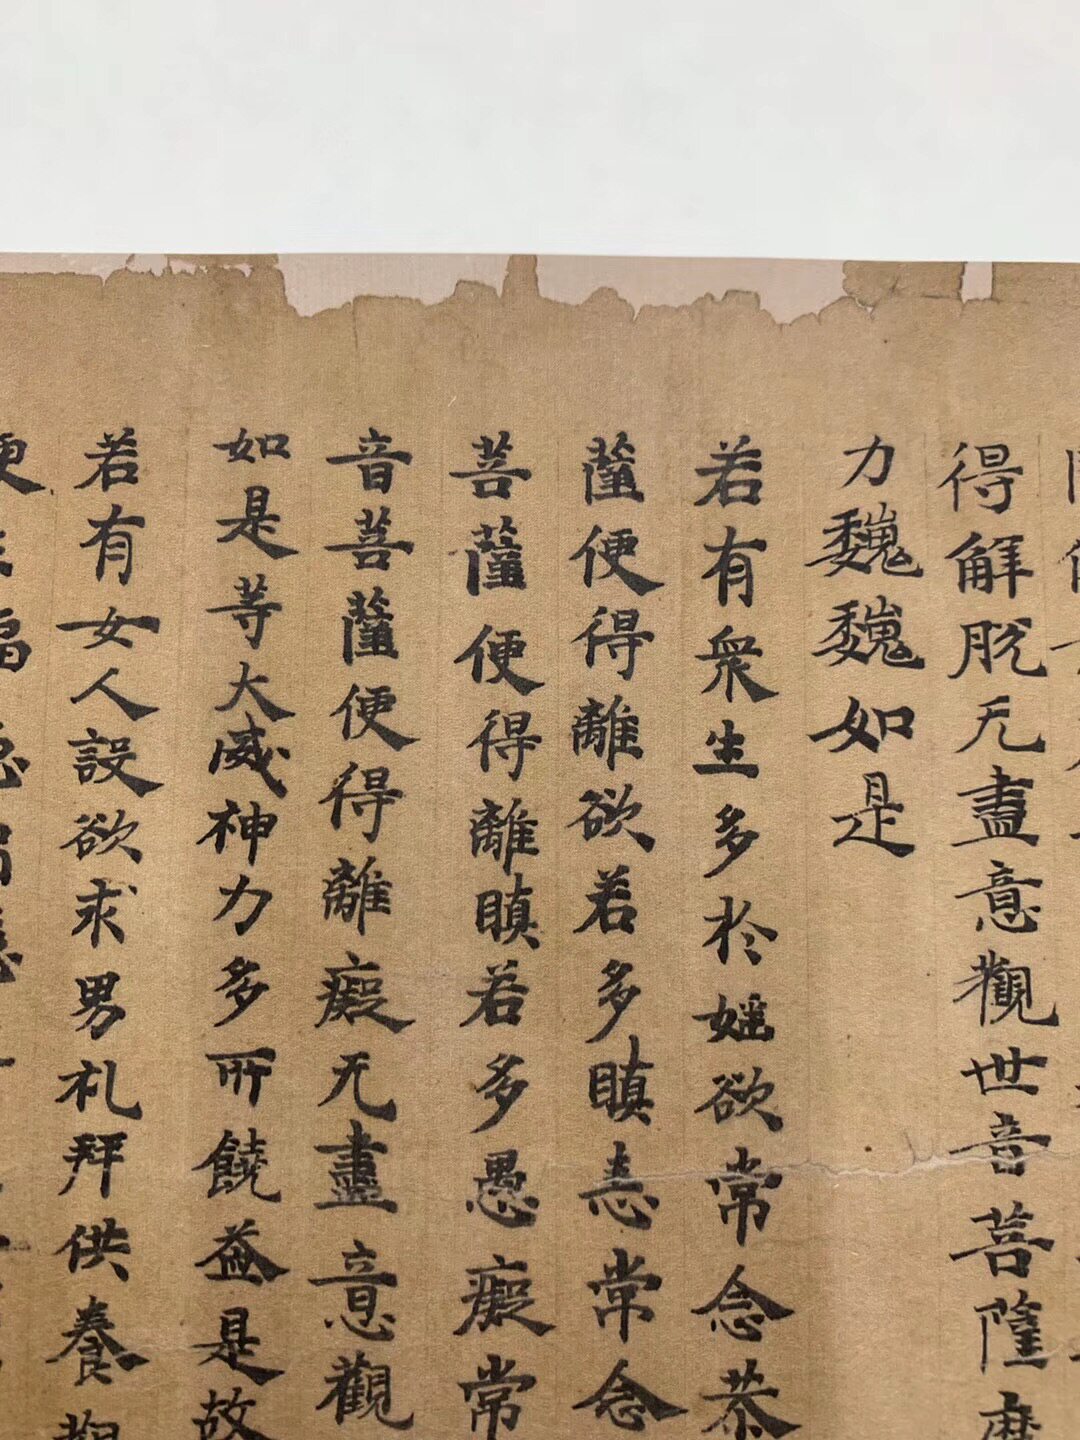 得解脱无盡意觀世音菩薩摩
力巍巍如是
若有衆生多於婬欲常念恭
薩便得離欲若多瞋恚常念
菩薩便得離瞋若多愚癡常
音菩薩便得離癡无盡意觀
如是等大威神力多所饒益是故
若有女人設欲求男礼拜供養觀
便